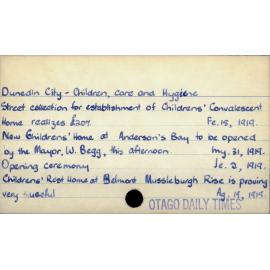 Dunedin City - Children, care and Hygiene
Street collection for establishment of Childrens' Convalescent
Home realizes £207. Fe. 15, 1919.
New Childrens' Home at Anderson's Bay to be opened
by the Mayor, W. Begg, this afternoon. my. 31, 1919.
Opening ceremony. Je. 2, 1919.
Childrens' Rest Home at Belmont Mussleburgh Rise is proving
very suseful Ag. 19, 1919.
OTAGO DAILY TIMES